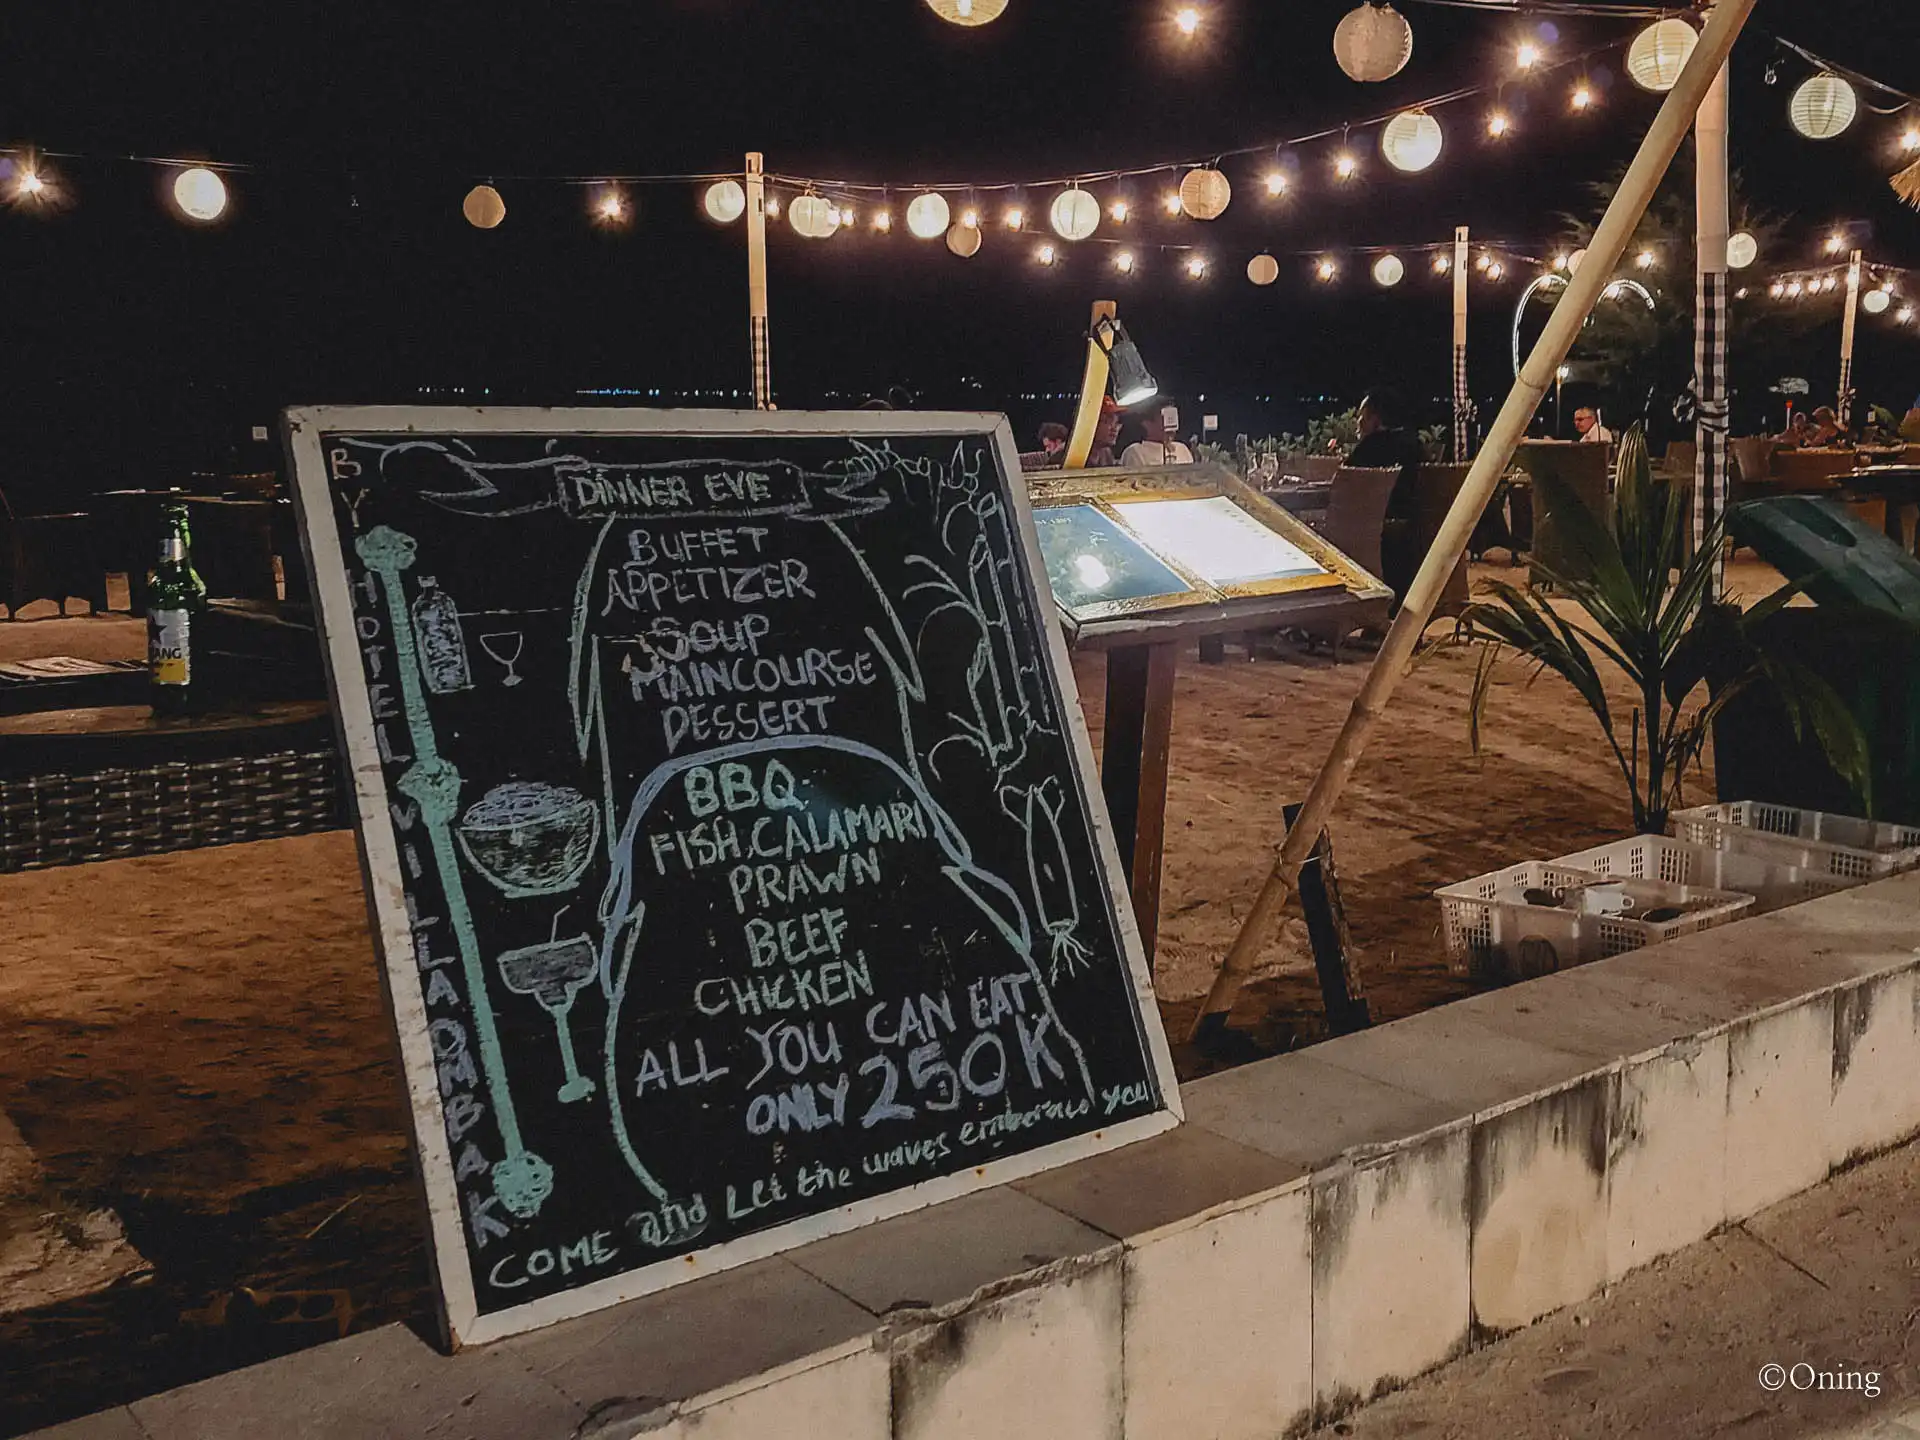 DINNER EVE
BUFFET
APPETIZER
SOUP
MAINCOURSE
DESSERT
BBQ
FISH, CALAMARI
PRAWN
BEEF
CHICKEN
ALL YOU CAN EAT
ONLY 250K
COME and Let the waves embrace you
BY HOTEL VILLA OMBAK
©Oning